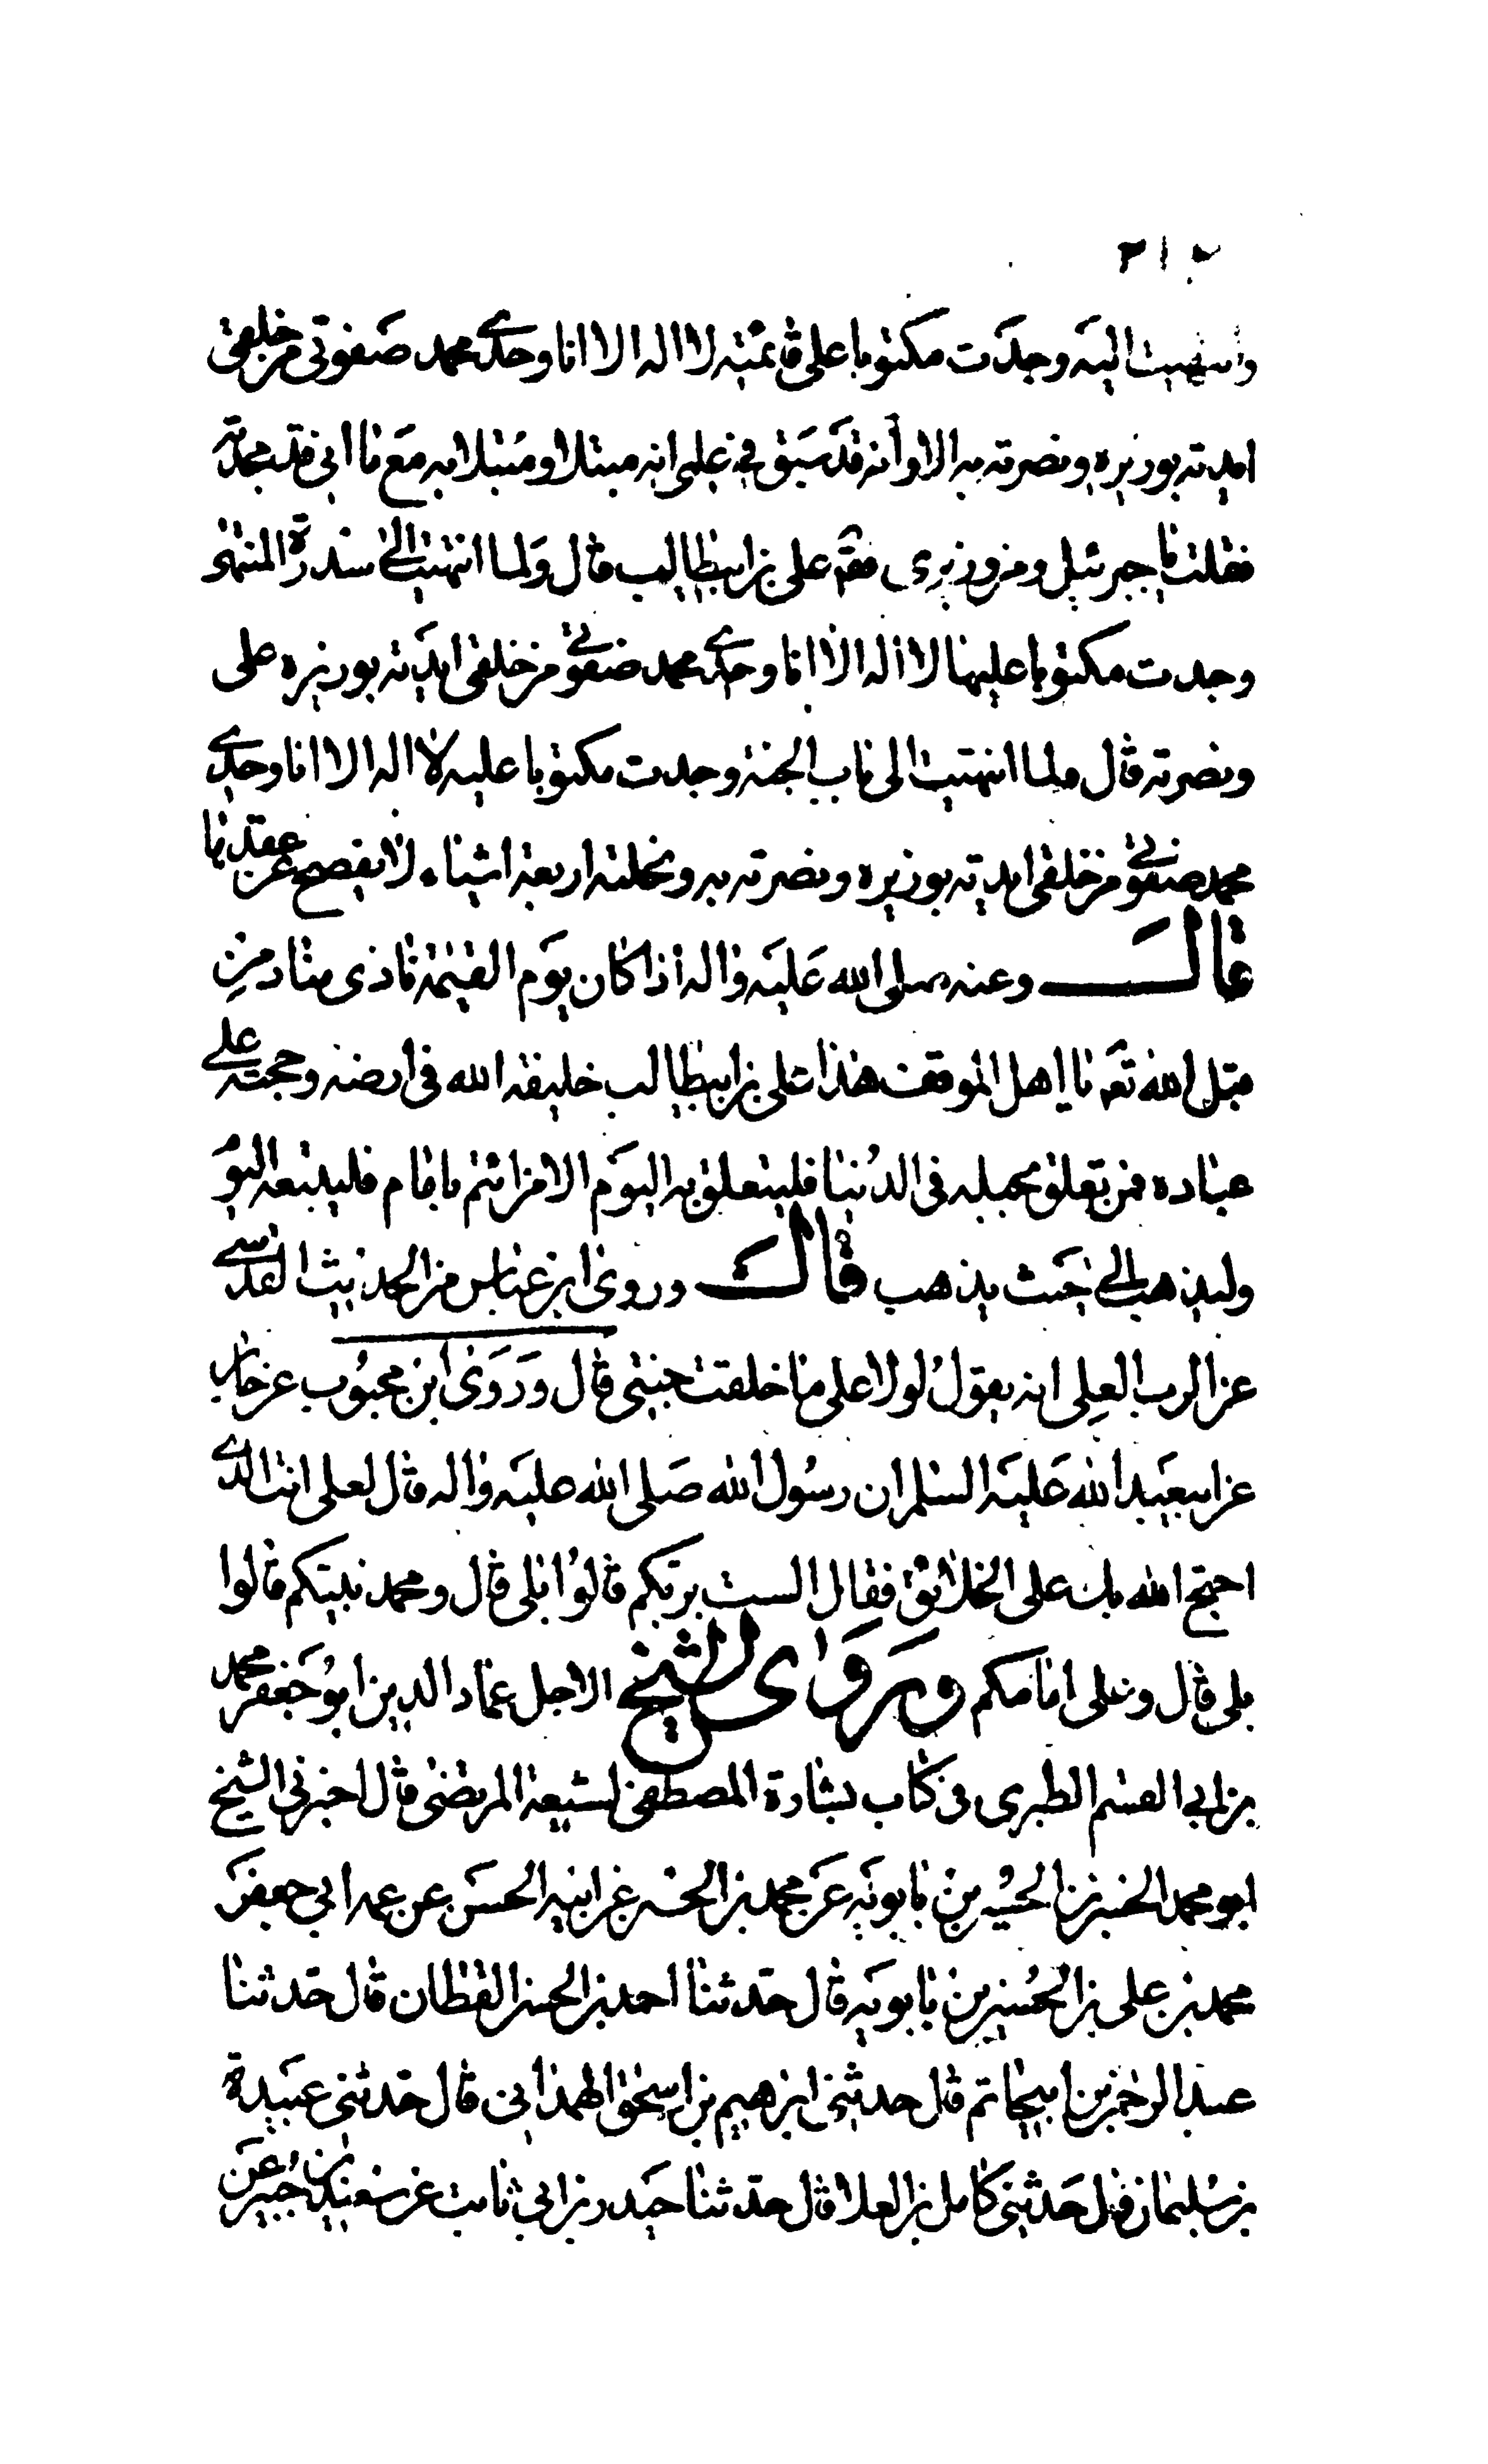 ٣١٧
وانتهيت اليه وجدت مكتوبا على قائمته لا اله الا انا وحدي محمد صفوتي من خلقي
ايدته بوزيره ونصرته به الا وانه قد سبق في علمي انه مبتلا ومبتلا به مع ما اني قد نحلته
فقلت يا جبرئيل ومن وزيري فقال علي بن ابيطالب قال ولما انتهيت الى سدرة المنتهى
وجدت مكتوبا عليها لا اله الا انا وحدي محمد صفوتي من خلقي ايدته بوزيره علي
ونصرته قال ولما انتهيت الى باب الجنة وجدت مكتوبا عليه لا اله الا انا وحدي
محمد صفوتي من خلقي ايدته بوزيره ونصرته به ونحلته اربعة اشياء لا يفصح عن عقدتها
قال وعنه صلى الله عليه واله اذا كان يوم القيمة نادى مناد من
قبل الله تعه يا اهل الموقف هذا علي بن ابيطالب خليفة الله في ارضه وحجته على
عباده فمن تعلق بحبله في الدنيا فليتعلق به اليوم الا من ائتم بامام فليتبعه اليوم
وليذهب الى حيث يذهب قال وروى ابن عباس من الحديث القدسي
عن الرب العلي انه يقول لولا علي ما خلقت جنتي قال وروى ابن محبوب عن جابر
عن ابيعبد الله عليه السلم ان رسول الله صلى الله عليه واله قال لعلي انت الذي
احتج الله بك على الخلائق فقال الست بربكم قالوا بلى قال ومحمد نبيكم قالوا
بلى قال وعلي امامكم وروى الشيخ الاجل عماد الدين ابو جعفر محمد
بن ابي القسم الطبري في كتاب بشارة المصطفى لشيعة المرتضى قال اخبرني الشيخ
ابو محمد الحسن بن الحسين بن بابويه عن محمد بن الحسن عن ابيه الحسن عن عمه ابي جعفر
محمد بن علي بن الحسين بن بابويه قال حدثنا احمد بن الحسن القطان قال حدثنا
عبد الرحمن بن ابيحاتم قال حدثني ابرهيم بن اسحق الهمذاني قال حدثني عبيدة
بن سليمان قال حدثني كامل بن العلا قال حدثنا حبيب بن ابي ثابت عن سعيد بن جبير عن